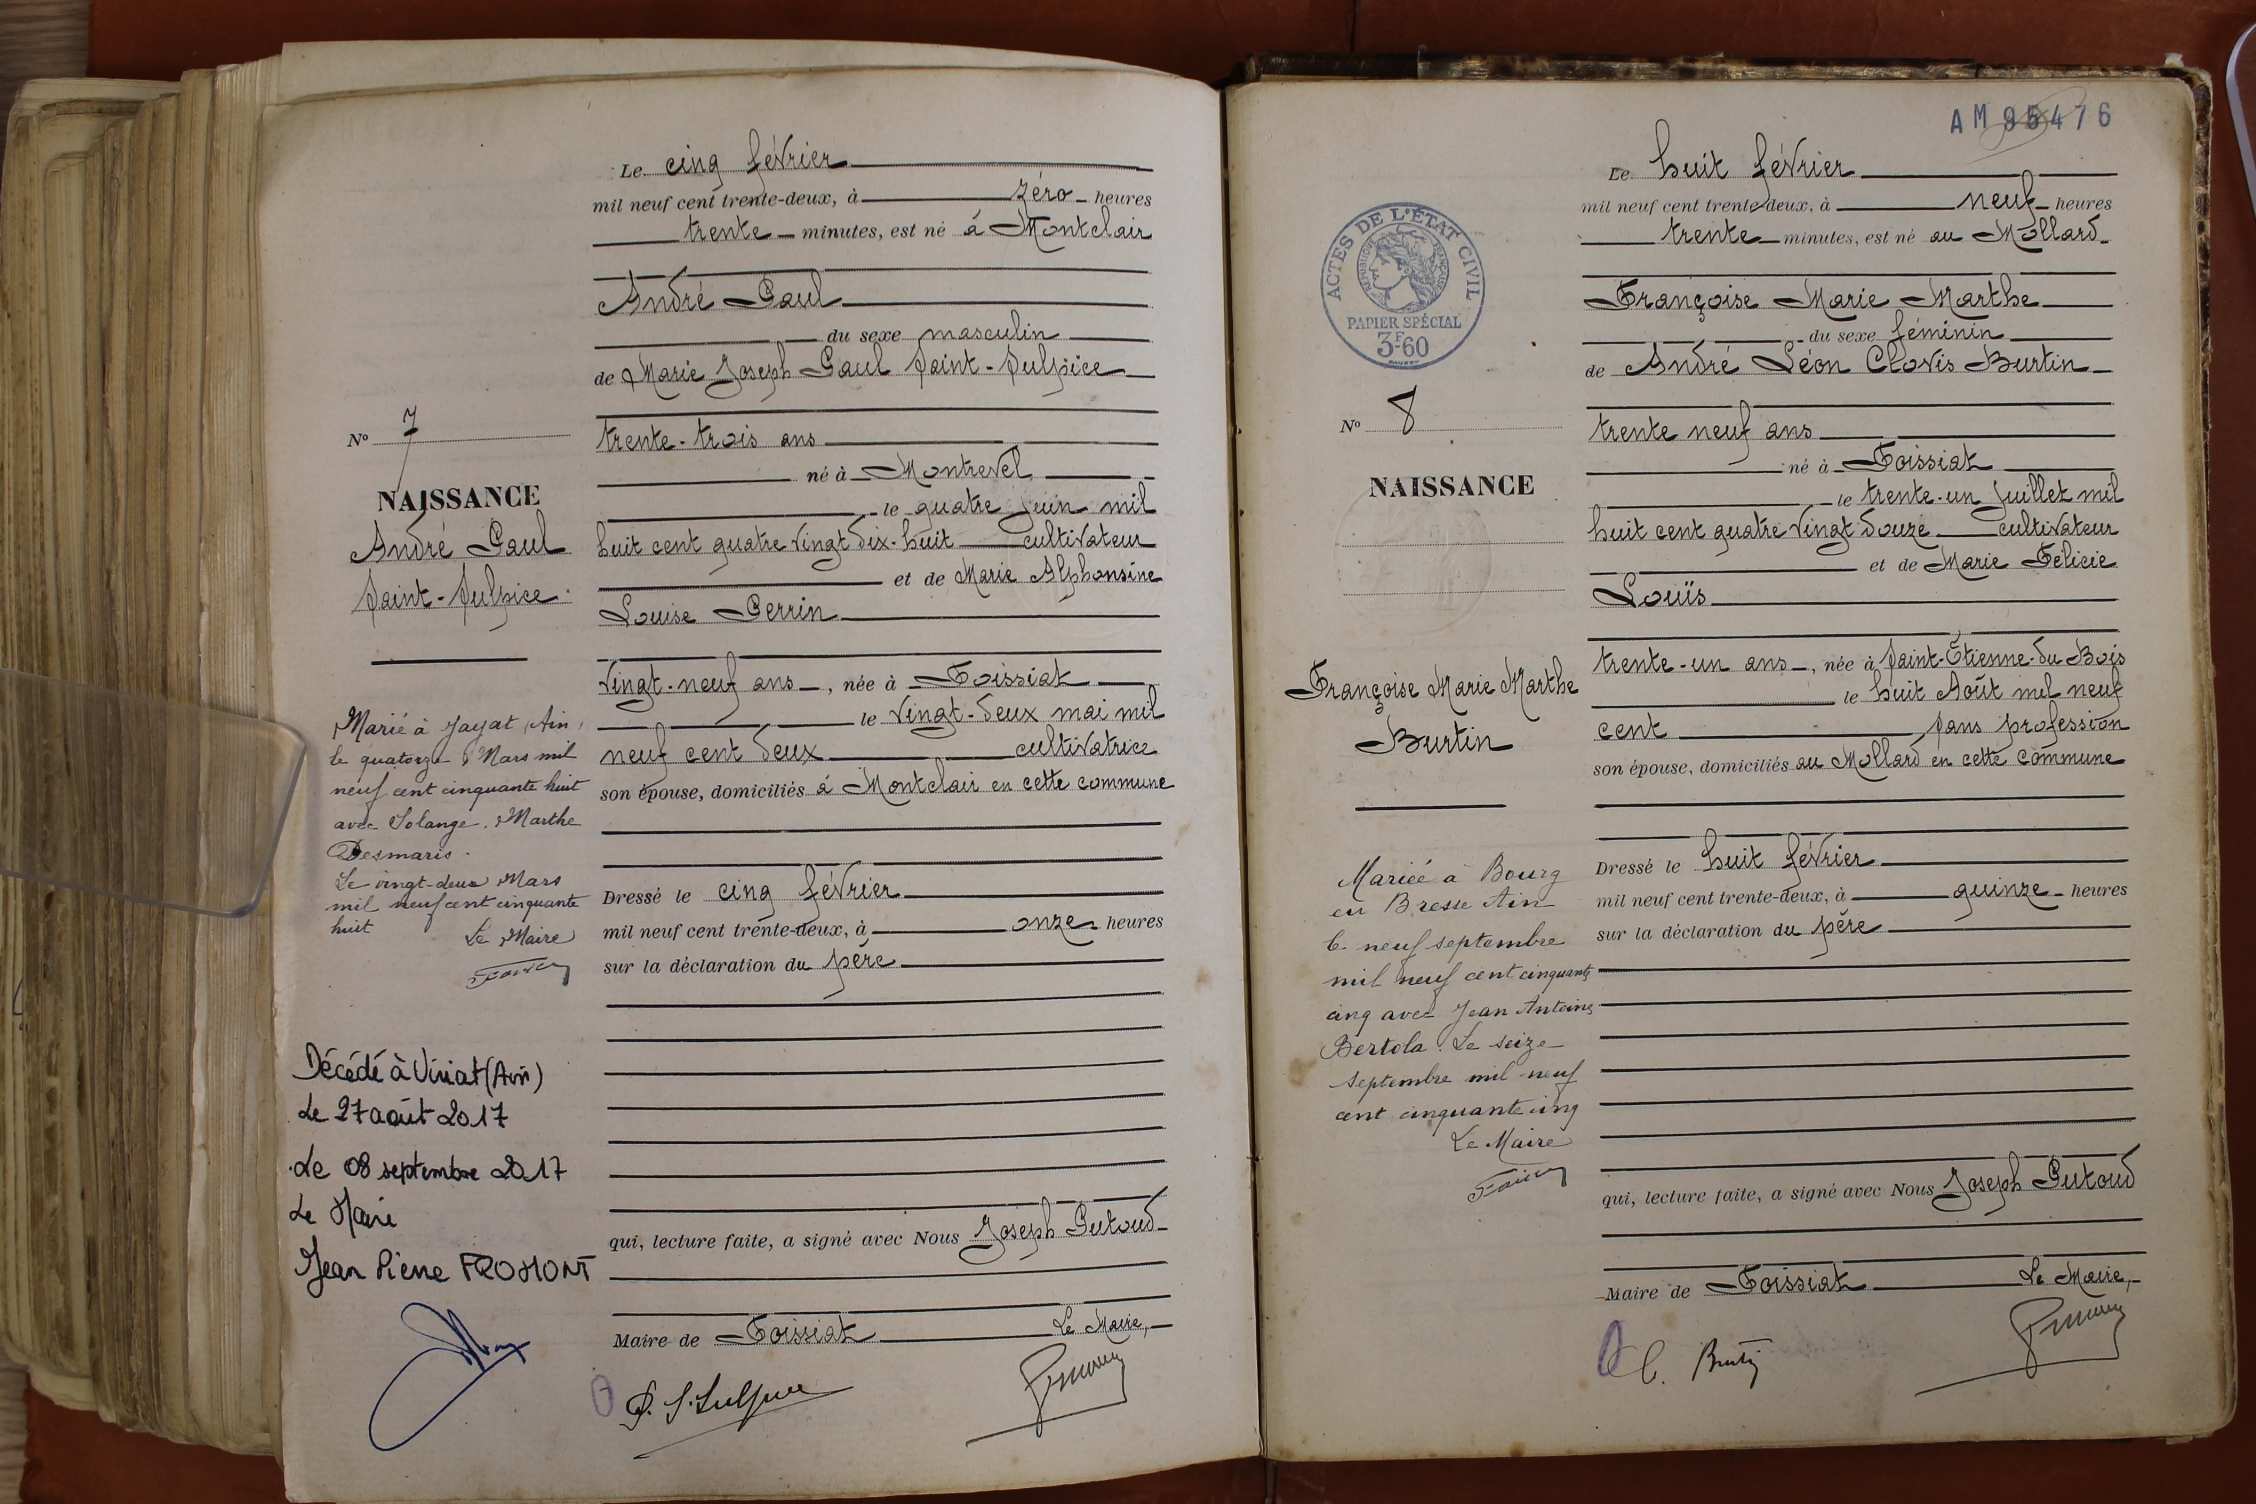 Le cinq février
mil neuf cent trente-deux, à zéro heures
trente minutes, est né à Montclair
André Paul
du sexe masculin
de Marie Joseph Paul Saint-Sulpice
trente-trois ans
né à Montrevel
le quatre juin mil
huit cent quatre vingt dix-huit cultivateur
et de Marie Alphonsine
Louise Perrin
vingt-neuf ans, née à Foissiat
le vingt-deux mai mil
neuf cent deux cultivatrice
son épouse, domiciliés à Montclair en cette commune
Dressé le cinq février
mil neuf cent trente-deux, à onze heures
sur la déclaration du père
qui, lecture faite, a signé avec Nous Joseph Putoud
Maire de Foissiat Le Maire,
No 7
NAISSANCE
André Paul
Saint-Sulpice
Marié à Jayat, Ain,
le quatorze Mars mil
neuf cent cinquante huit
avec Solange Marthe
Desmaris.
Le vingt-deux Mars
mil neuf cent cinquante
huit
Le Maire
Décédé à Viriat (Ain)
Le 27 août 2017
Le 08 septembre 2017
Le Maire
Jean Pierre FROMONT
AM 95476
Le huit février
mil neuf cent trente-deux, à neuf heures
trente minutes, est né au Mollard
Françoise Marie Marthe
du sexe féminin
de André Léon Clovis Burtin
trente neuf ans
né à Foissiat
le trente-un juillet mil
huit cent quatre vingt douze cultivateur
et de Marie Félicie
Louis
trente-un ans, née à Saint-Étienne-du-Bois
le huit Août mil neuf
cent sans profession
son épouse, domiciliés au Mollard en cette commune
Dressé le huit février
mil neuf cent trente-deux, à quinze heures
sur la déclaration du père
qui, lecture faite, a signé avec Nous Joseph Putoud
Maire de Foissiat Le Maire,
ACTES DE L'ÉTAT CIVIL
RÉPUBLIQUE FRANÇAISE
PAPIER SPÉCIAL
3F60
No 8
NAISSANCE
Françoise Marie Marthe
Burtin
Mariée à Bourg
en Bresse Ain
le neuf septembre
mil neuf cent cinquante
cinq avec Jean Antoine
Bertola. Le seize
septembre mil neuf
cent cinquante cinq
Le Maire